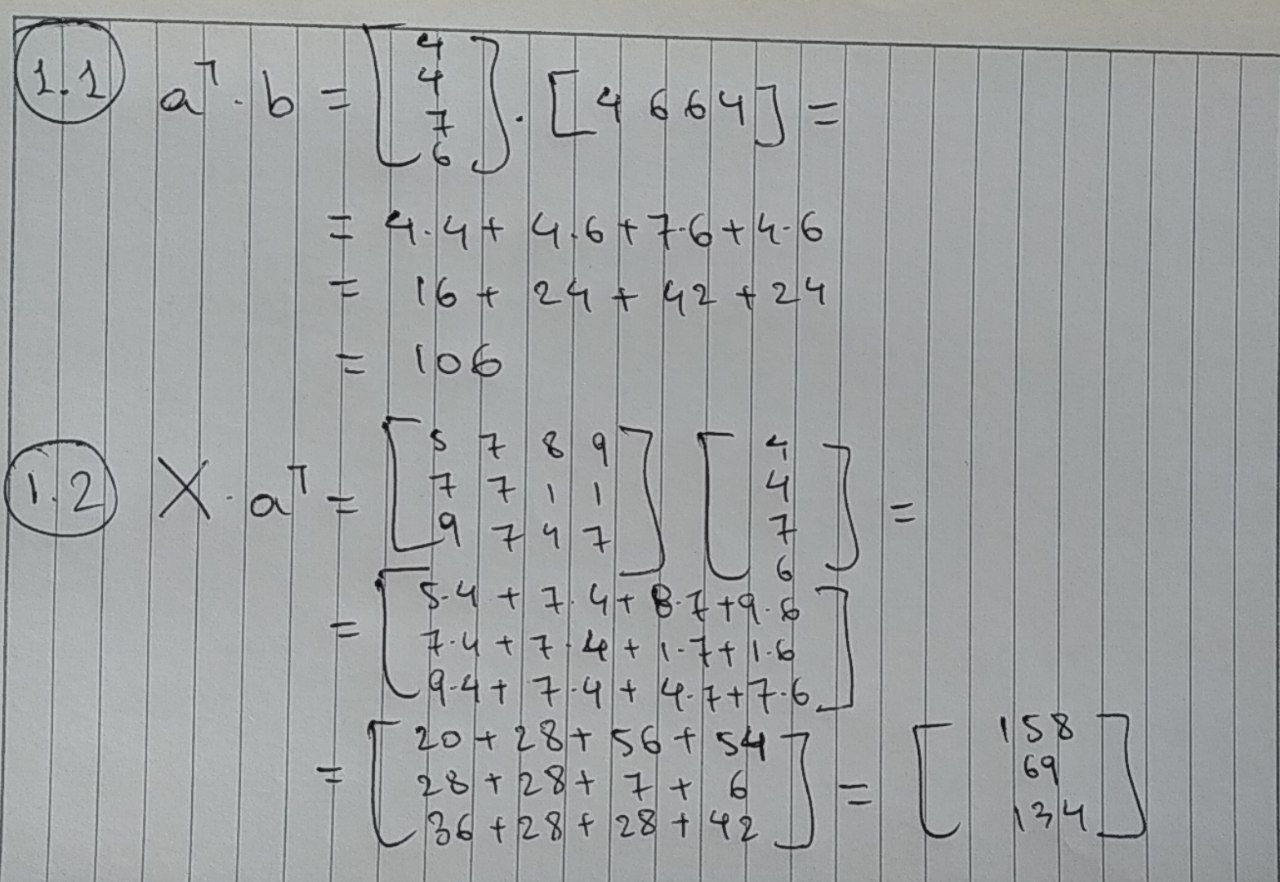 1.1 aᵀ · b = [4 4 7 6] · [4 6 6 4] =
= 4·4 + 4·6 + 7·6 + 4·6
= 16 + 24 + 42 + 24
= 106
1.2 X · aᵀ = [5 7 8 9
7 7 1 1
9 7 4 7] [4
4
7
6] =
= [5·4 + 7·4 + 8·7 + 9·6
7·4 + 7·4 + 1·7 + 1·6
9·4 + 7·4 + 4·7 + 7·6]
= [20 + 28 + 56 + 54
28 + 28 + 7 + 6
36 + 28 + 28 + 42] = [158
69
134]